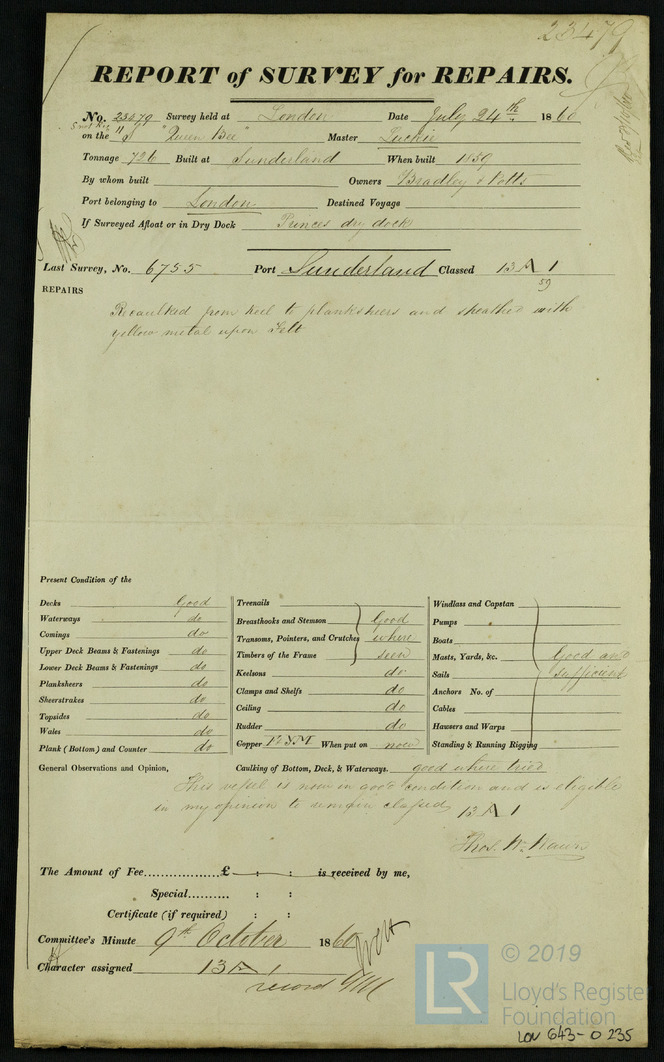 23479
REPORT of SURVEY for REPAIRS.
No. 23479 Survey held at London Date July 24th 1860
on the "Queen Bee" Master Luckie
Tonnage 726 Built at Sunderland When built 1859
By whom built Owners Bradley & Potts
Port belonging to London Destined Voyage
If Surveyed Afloat or in Dry Dock Princes dry dock
Last Survey, No. 6755 Port Sunderland Classed 13 A 1
59
REPAIRS
Recaulked from keel to planksheers and sheathed with
yellow metal upon Felt
Present Condition of the
Decks Good
Waterways do
Comings do
Upper Deck Beams & Fastenings do
Lower Deck Beams & Fastenings do
Planksheers do
Sheerstrakes do
Topsides do
Wales do
Plank (Bottom) and Counter do
Treenails
Breasthooks and Stemson Good
Transoms, Pointers, and Crutches where
Timbers of the Frame seen
Keelsons do
Clamps and Shelfs do
Ceiling do
Rudder do
Copper Y.M When put on now
Windlass and Capstan
Pumps
Boats
Masts, Yards, &c. Good and
Sails sufficient
Anchors No. of
Cables
Hawsers and Warps
Standing & Running Rigging
General Observations and Opinion, Caulking of Bottom, Deck, & Waterways. good where tried
This vessel is now in good condition and is eligible
in my opinion to remain classed 13 A 1
Thos. W. Wawn
The Amount of Fee................£ : : is received by me,
Special.......... : :
Certificate (if required) : :
Committee's Minute 9th October 1860
Character assigned 13 A 1
record
LR
© 2019
Lloyd's Register
Foundation
LON 643-0235